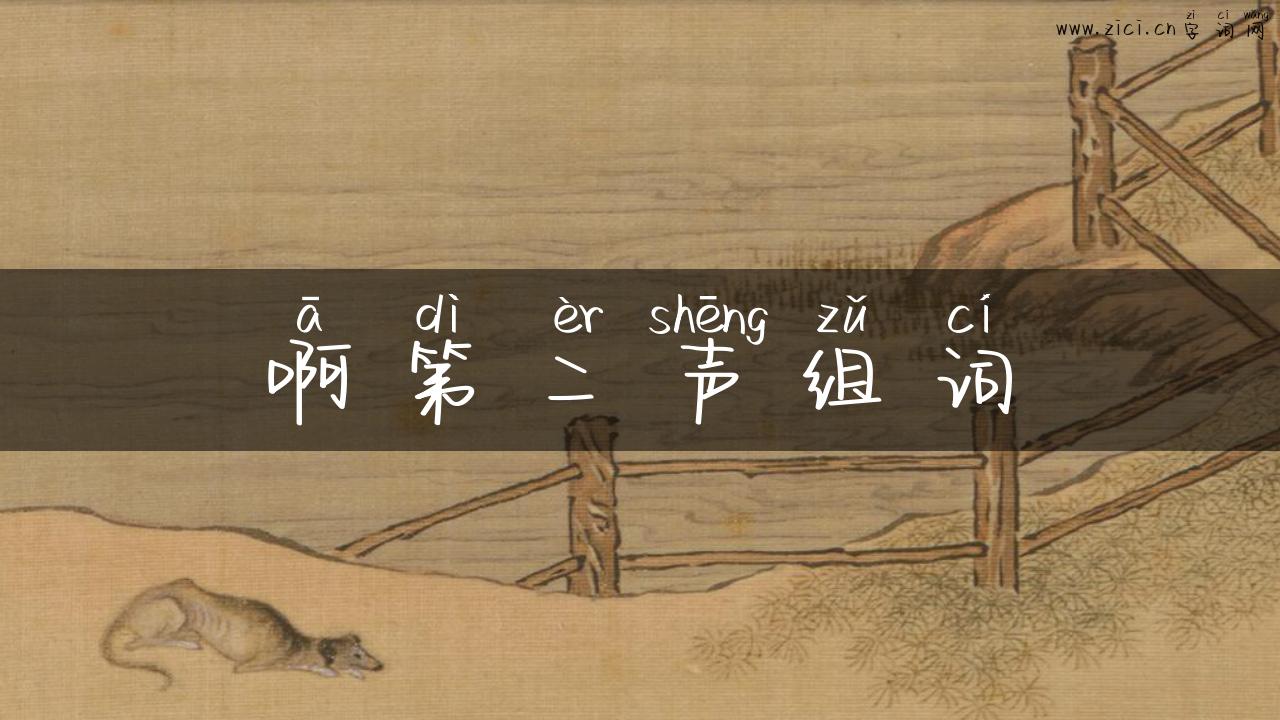 zì cí wǎng
www.zici.cn字词网
ā dì èr shēng zǔ cí
啊第二声组词